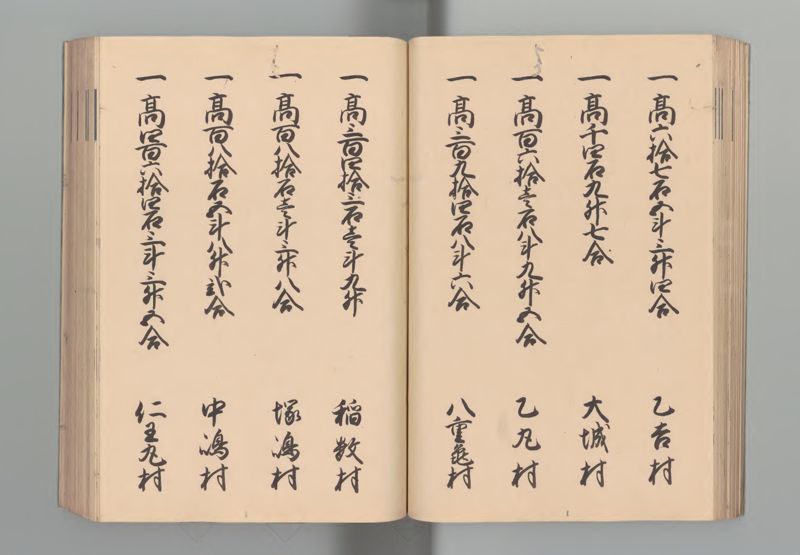 一高六拾七石五斗三升四合 乙吉村
一高千四石九升七合 大城村
一高百六拾壱石八斗九升五合 乙丸村
一高三百九拾四石八斗六合 八重亀村
一高三百四拾三石壱斗九升 稲数村
一高百八拾石壱斗三升八合 塚嶋村
一高百八拾石五斗八升弐合 中嶋村
一高四百六拾四石三斗三升五合 仁王丸村